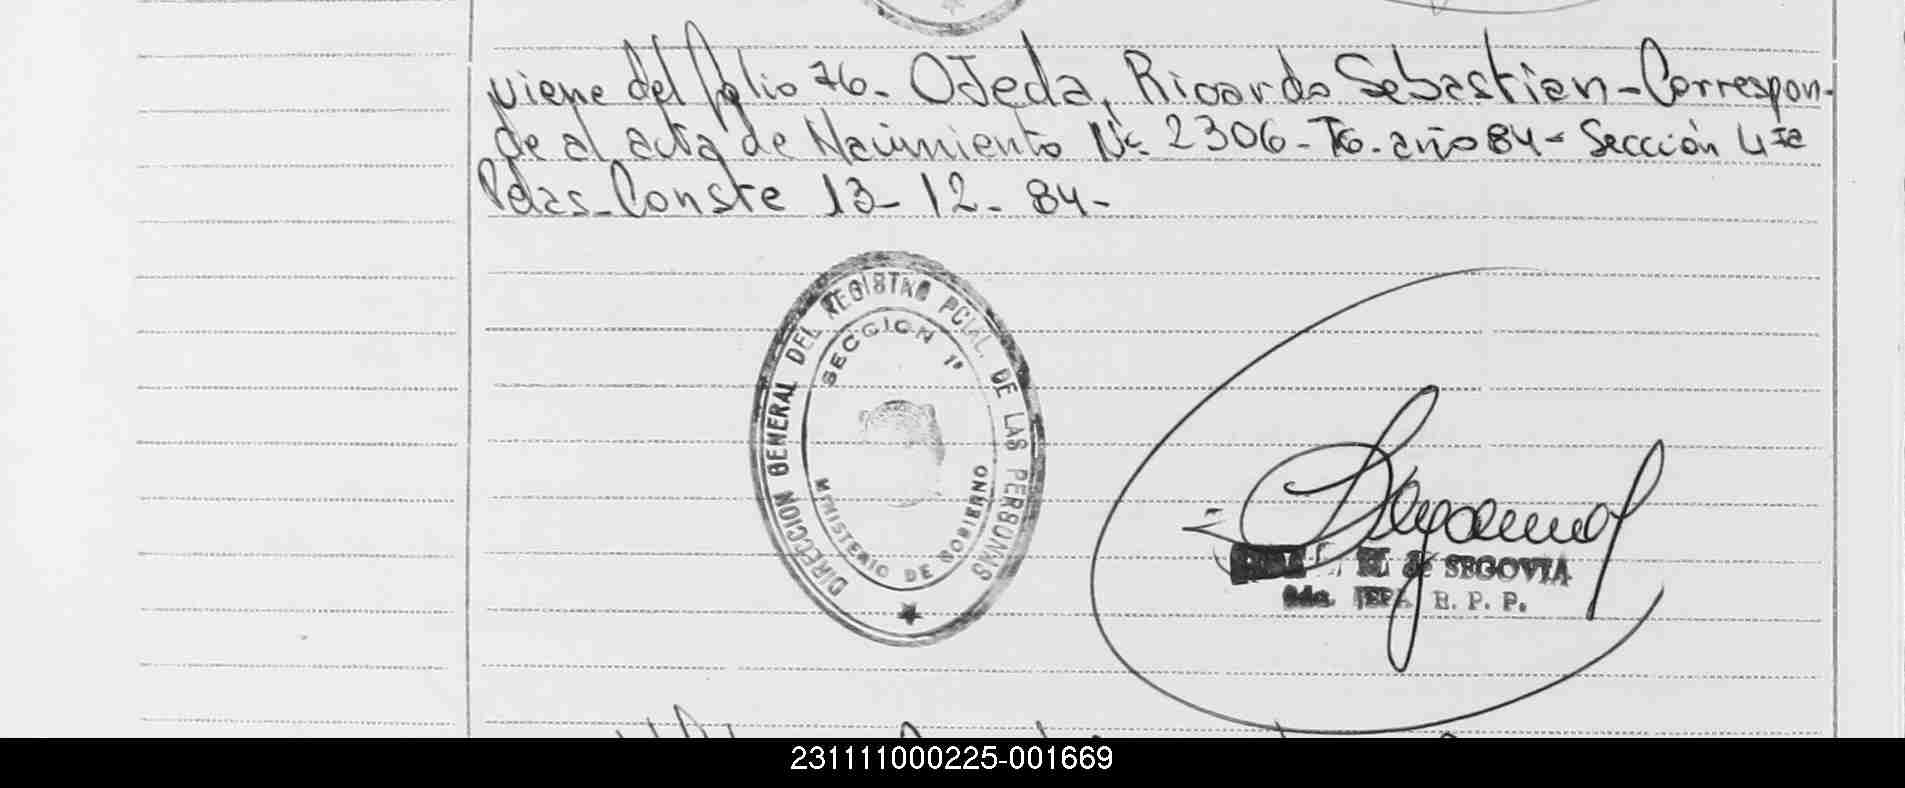 viene del folio 76. Ojeda, Ricardo Sebastian - Correspon-
de al acta de Nacimiento Nº 2306 - Tº. año 84 - Sección 4ta
Pdas. Conste 13 - 12 - 84 -
DIRECCION GENERAL DEL REGISTRO PCIAL. DE LAS PERSONAS
SECCION 1ª
MINISTERIO DE GOBIERNO
de SEGOVIA
2da. JEFA R. P. P.
231111000225-001669